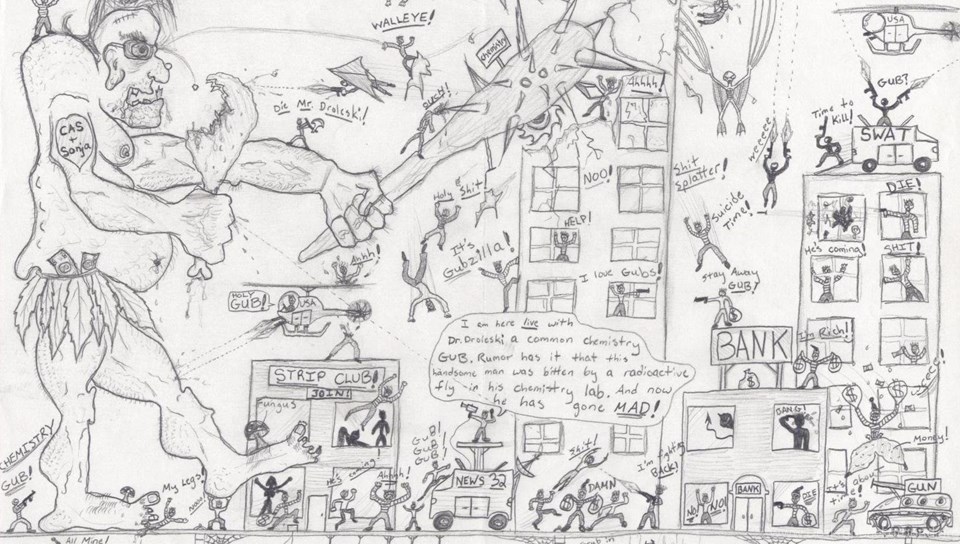 WALLEYE!
Chemistry
Ahhhh!
USA
GUB?
Time to
Kill!
SWAT
Die Mr. Droleski!
Suck!
weeeee
CAS
+
Sanja
Holy Shit!
NOO!
Shit
Splatter!
DIE!
Suicide
Time!
HELP!
It's
Gubzilla!
He's coming!
SHIT!
Ahhh!
I love Gubs!
Stay Away
GUB?
HOLY
GUB!
USA
I am here live with
Dr. Droleski a common chemistry
GUB. Rumor has it that this
handsome man was bitten by a radioactive
fly in his chemistry lab. And now
he has gone MAD!
BANK
I'm Rich!!
STRIP CLUB!
JOINT!
Fungus
BANG!
CHEMISTRY
GUB!
GUB!
GUB!
GUB!
Shit!
I'm fighting
BACK!
Money!
My Leg?!
He's coming!
Ahhhh!
NEWS 32
DAMN
NO! NO!
BANK
DIE
It's about
time!
GUN
All Mine!